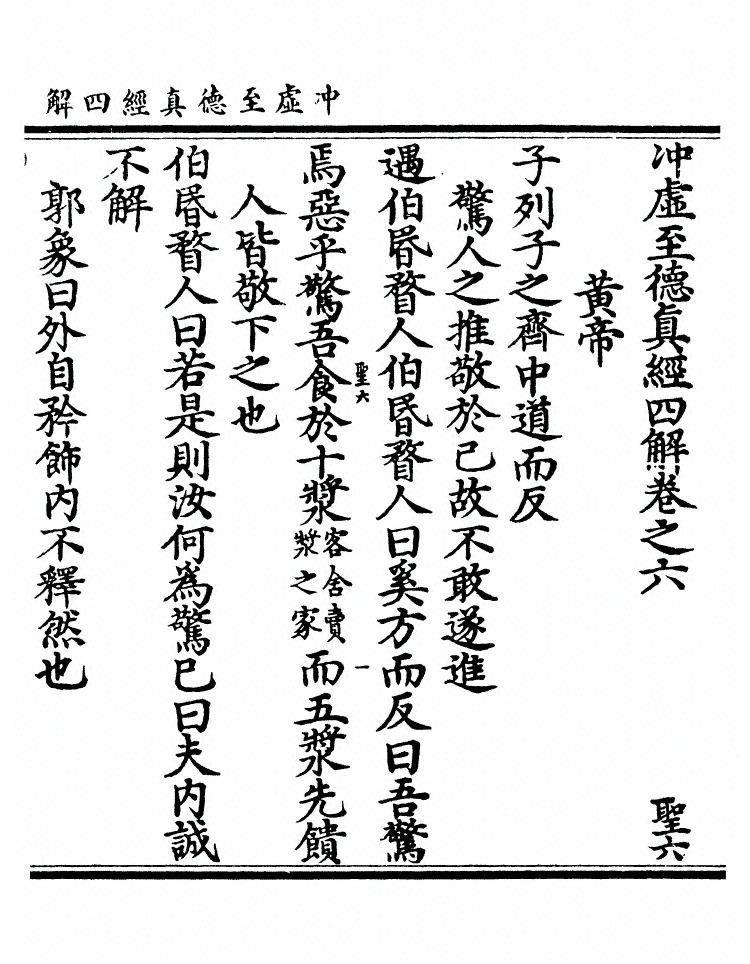 冲虛至德真經四解
冲虛至德眞經四解卷之六
聖六
黄帝
子列子之齊中道而反
驚人之推敬於己故不敢遂進
遇伯昬瞀人伯昬瞀人曰奚方而反曰吾驚
焉惡乎驚吾食於十漿
客舍賣
漿之家
而五漿先饋
聖六
一
人皆敬下之也
伯昬瞀人曰若是則汝何爲驚已曰夫内誠
不解
郭象曰外自矜飾内不釋然也